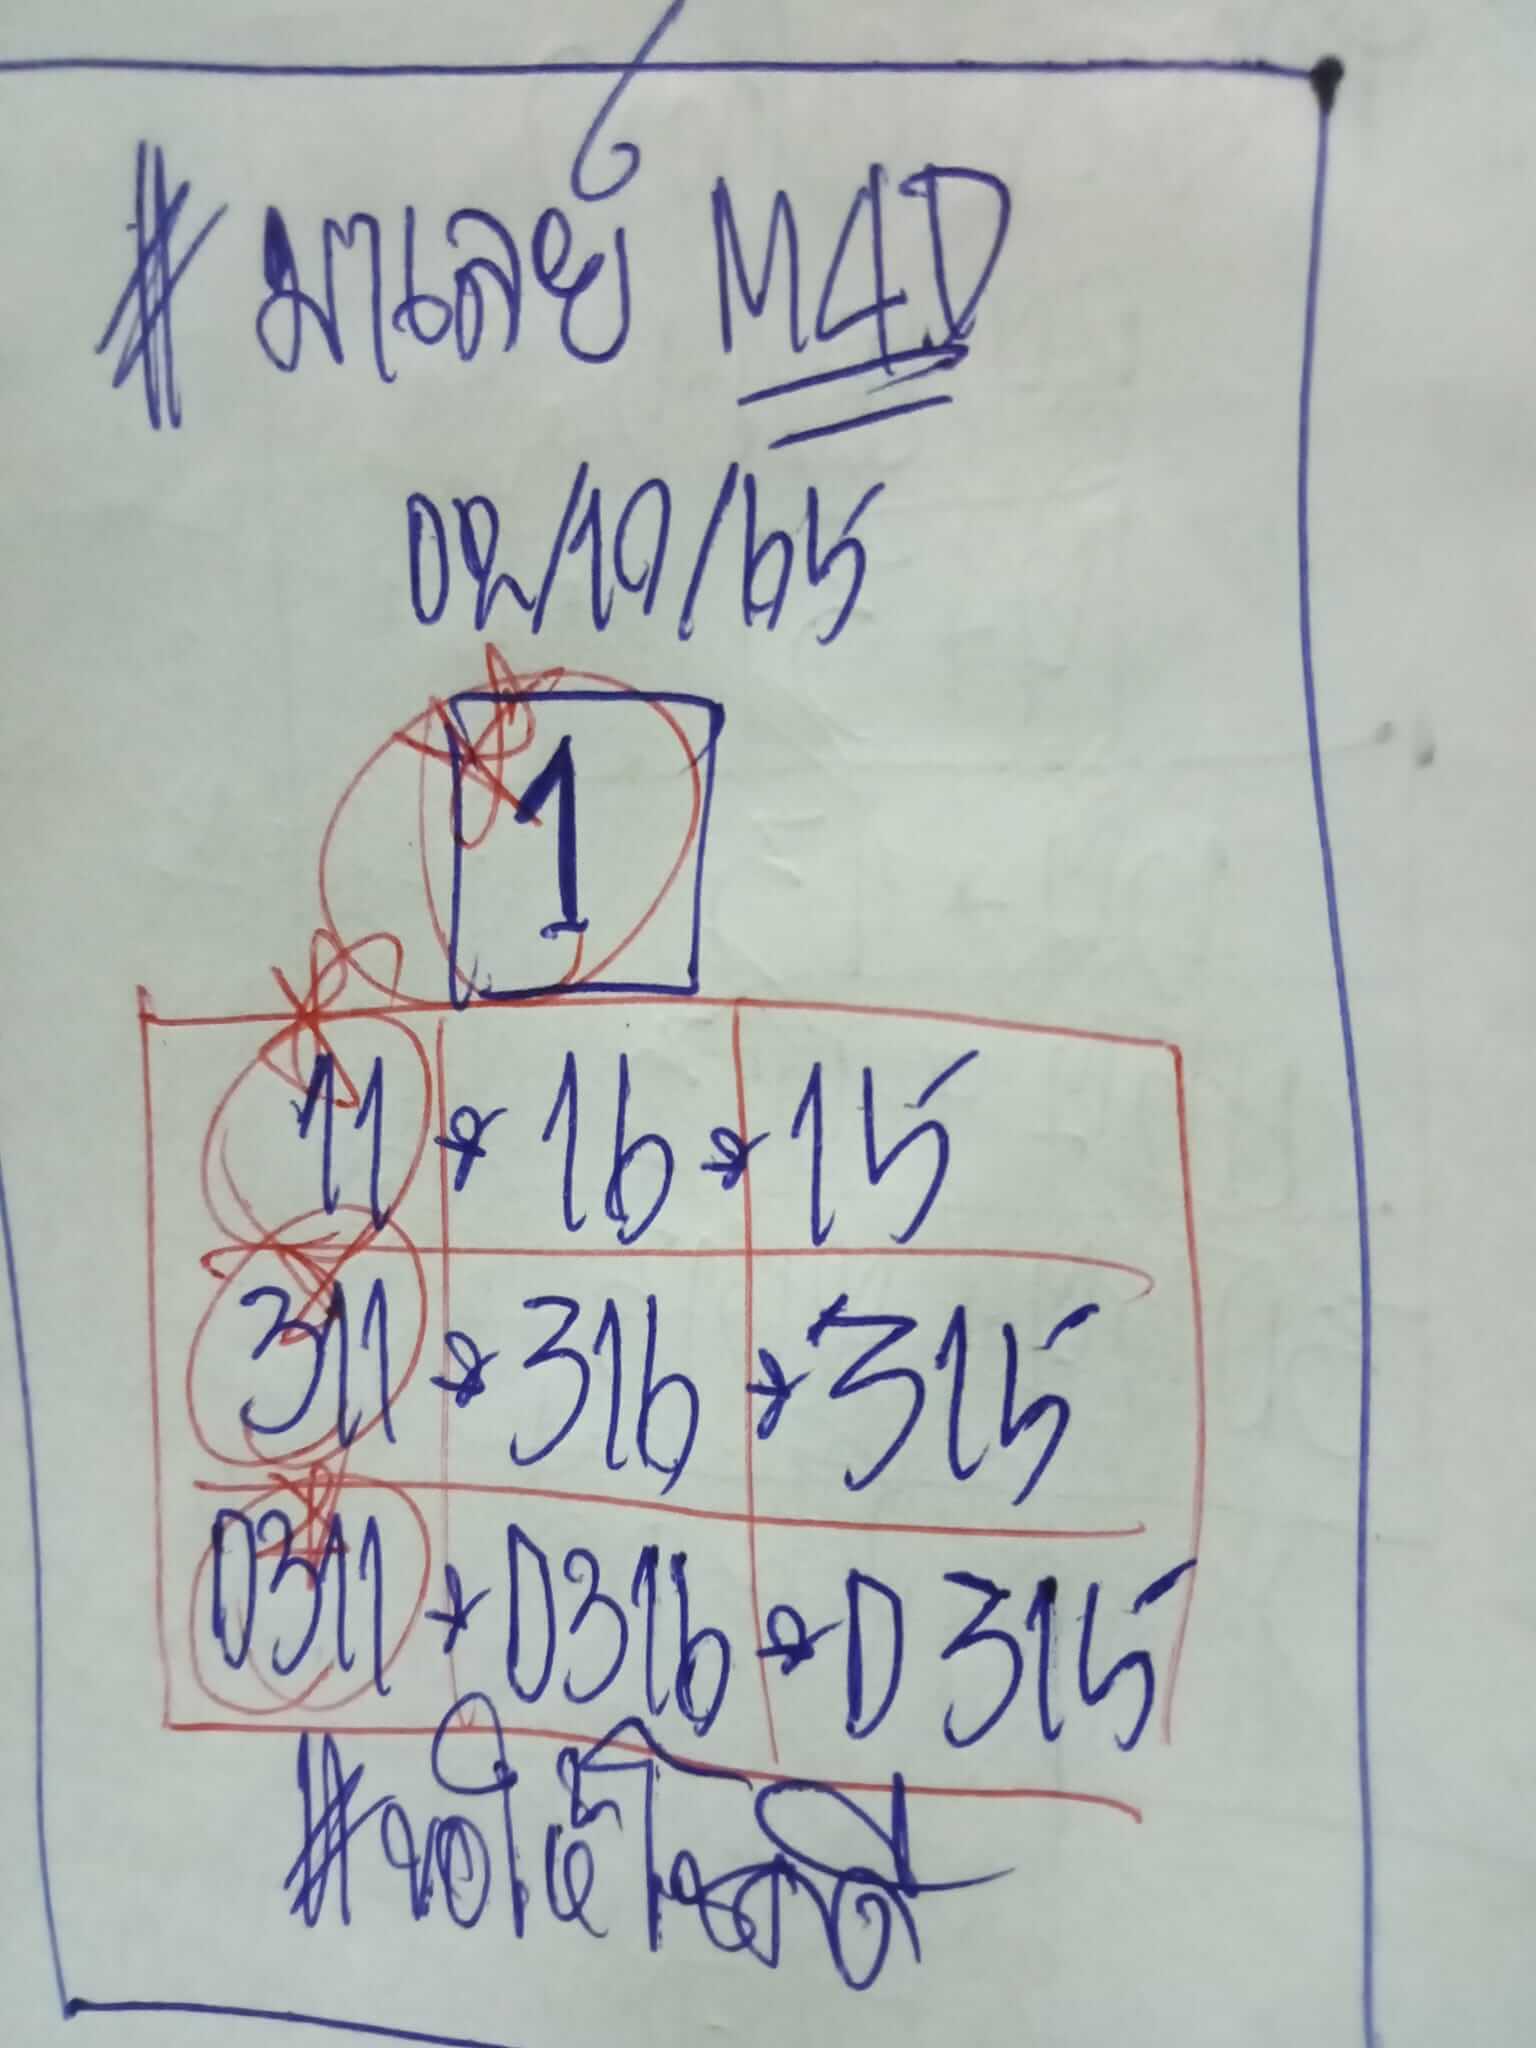 #มาเลย์ M4D
02/10/65
1
11 * 16 * 15
311 * 316 * 315
0311 * 0316 * 0315
#ขอให้โชคดี